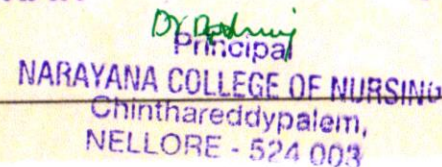 Principal
NARAYANA COLLEGE OF NURSING
Chinthareddypalem,
NELLORE - 524 003